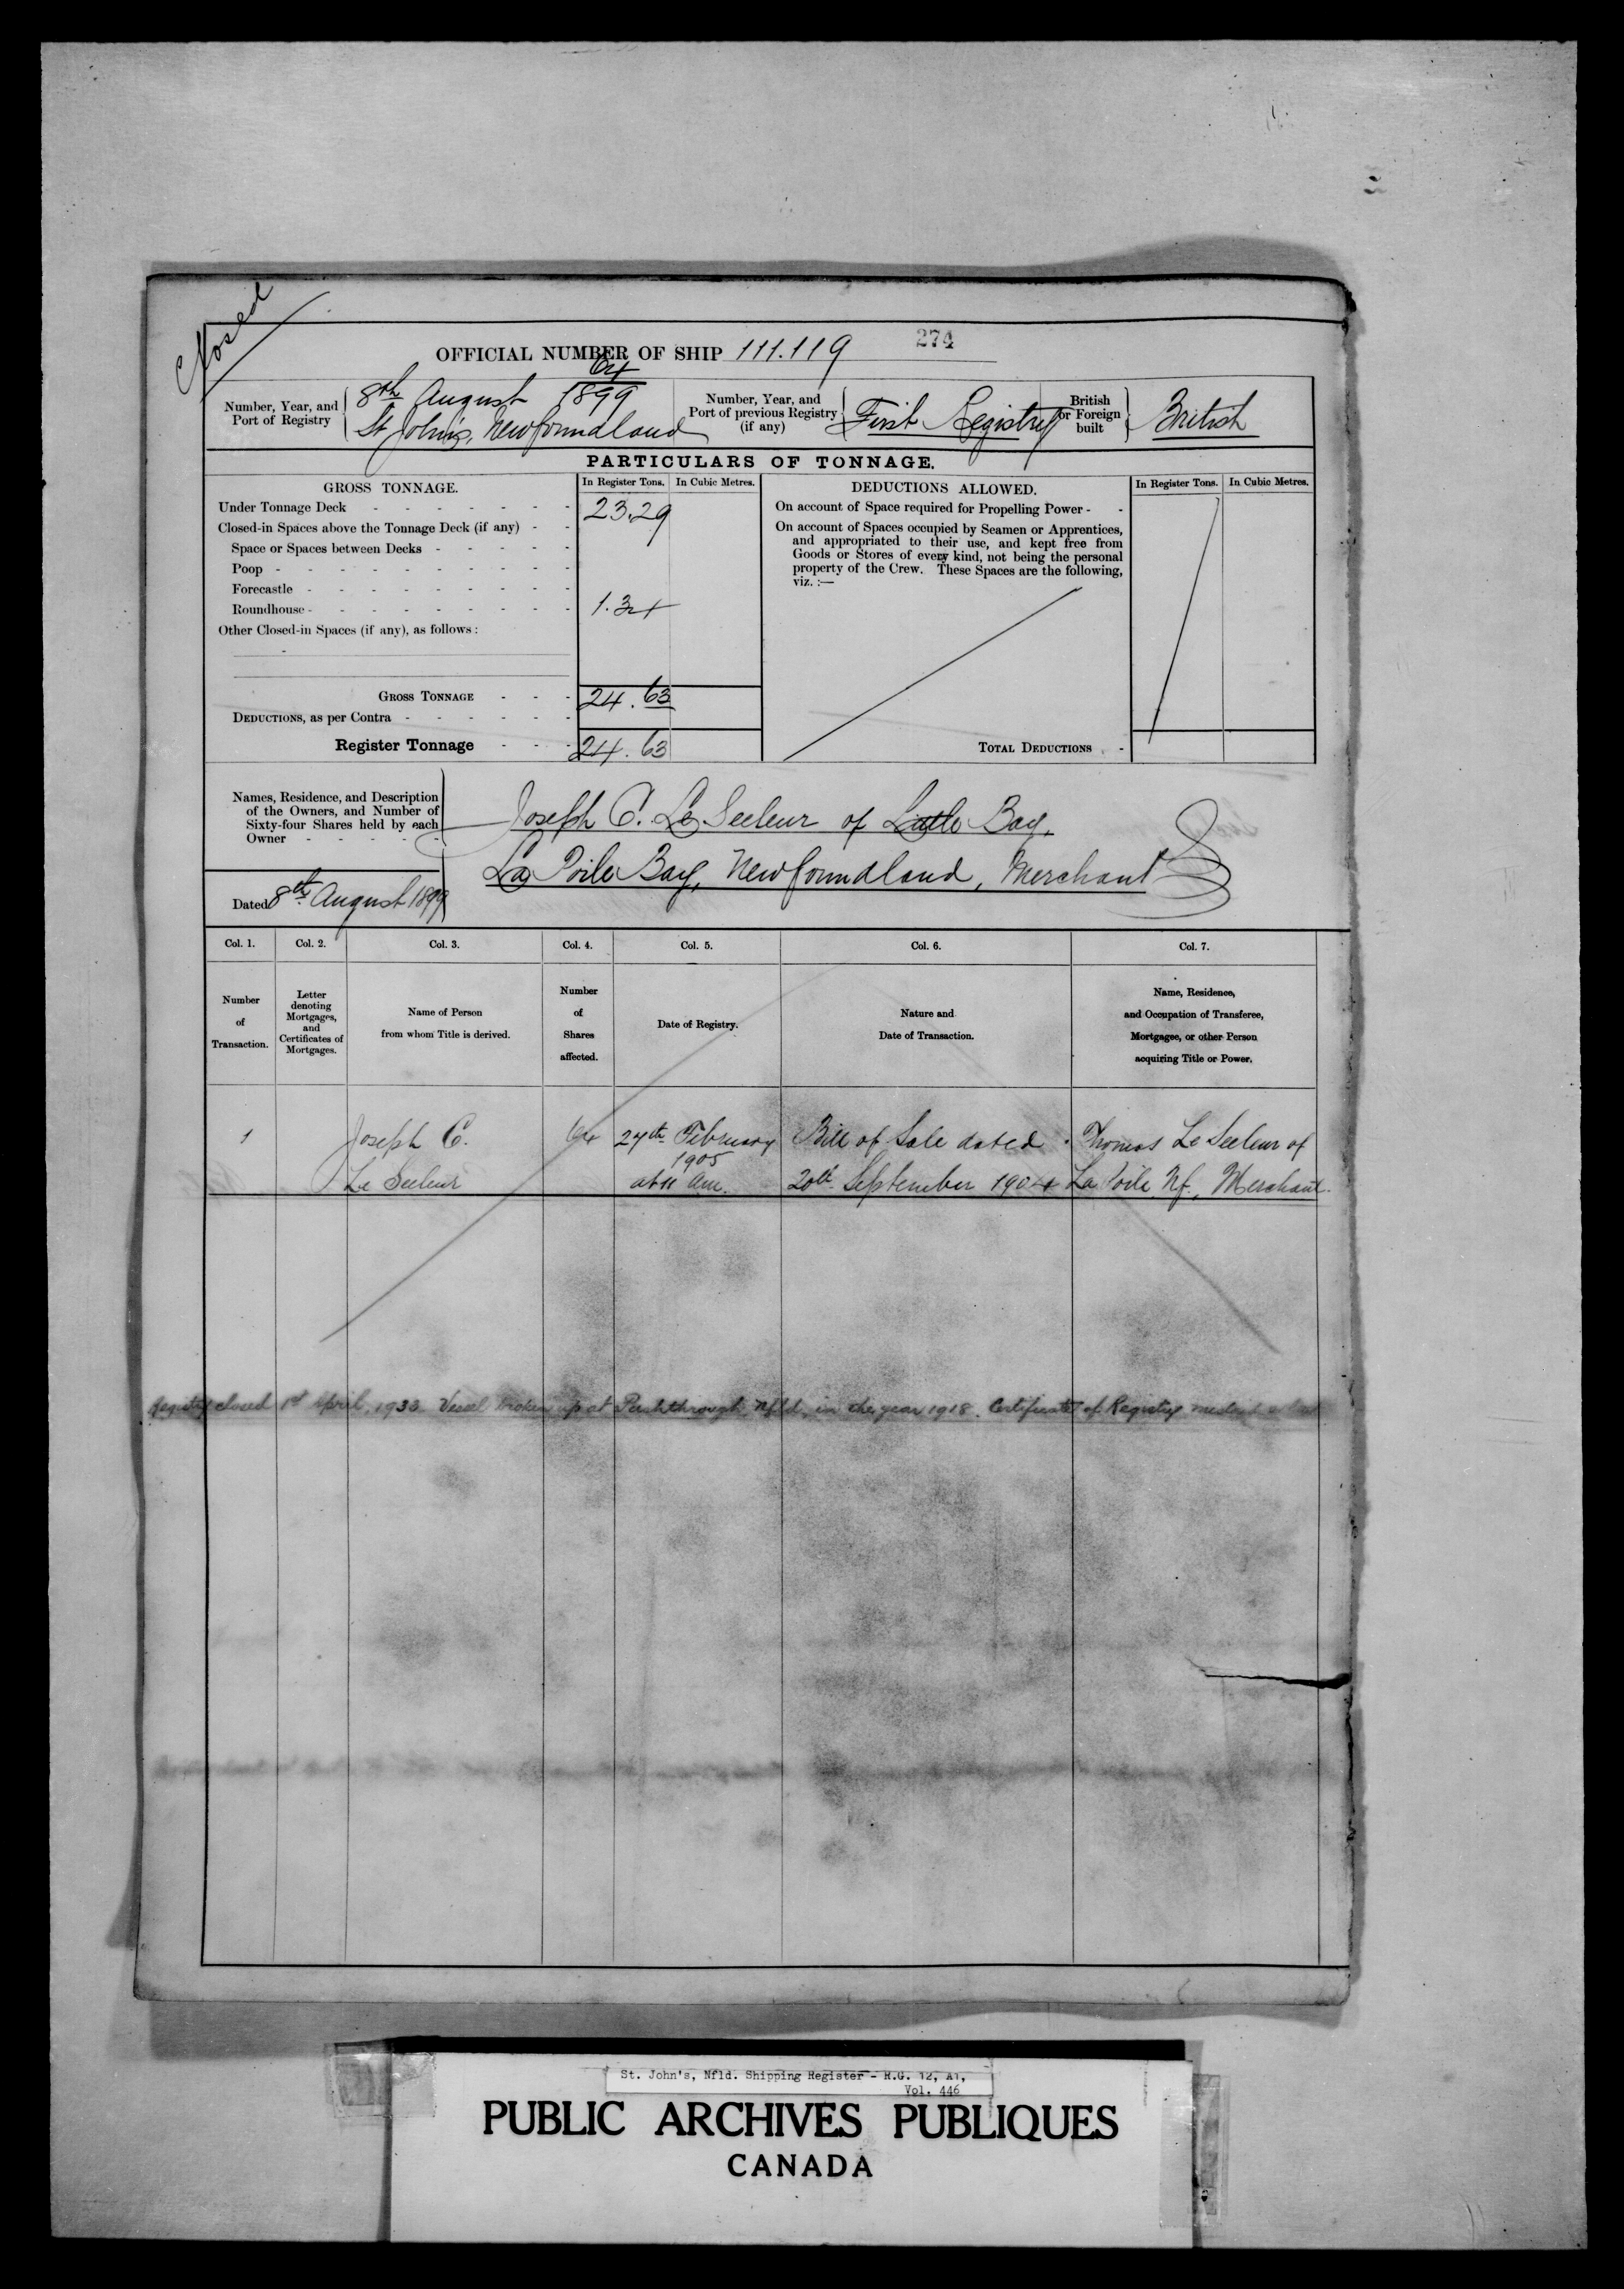 Closed
OFFICIAL NUMBER OF SHIP 111.119
274
Number, Year, and Port of Registry
64
8th August 1899
St John's, Newfoundland
Number, Year, and Port of previous Registry (if any)
First Registry
British or Foreign built
British
PARTICULARS OF TONNAGE.
GROSS TONNAGE.
In Register Tons. In Cubic Metres.
Under Tonnage Deck - - - - - - - 23.29
Closed-in Spaces above the Tonnage Deck (if any) - -
Space or Spaces between Decks - - - - -
Poop - - - - - - - - - -
Forecastle - - - - - - - - -
Roundhouse - - - - - - - - - 1.34
Other Closed-in Spaces (if any), as follows :
GROSS TONNAGE - - - 24.63
DEDUCTIONS, as per Contra - - - - - -
Register Tonnage - - - 24.63
DEDUCTIONS ALLOWED.
In Register Tons. In Cubic Metres.
On account of Space required for Propelling Power - -
On account of Spaces occupied by Seamen or Apprentices,
and appropriated to their use, and kept free from
Goods or Stores of every kind, not being the personal
property of the Crew. These Spaces are the following,
viz. :—
TOTAL DEDUCTIONS -
Names, Residence, and Description
of the Owners, and Number of
Sixty-four Shares held by each
Owner - - - - -
Dated 8th August 1899
Joseph C. Le Seeleur of Little Bay,
La Poile Bay, Newfoundland, Merchant
Col. 1. Col. 2. Col. 3. Col. 4. Col. 5. Col. 6. Col. 7.
Number of Transaction.
Letter denoting Mortgages, and Certificates of Mortgages.
Name of Person from whom Title is derived.
Number of Shares affected.
Date of Registry.
Nature and Date of Transaction.
Name, Residence, and Occupation of Transferee, Mortgagee, or other Person acquiring Title or Power.
1 Joseph C. 64 24th February Bill of Sale dated Thomas Le Seeleur of
1905
Le Seeleur at 11 am. 20th September 1904 La Poile Nf., Merchant.
Registry closed 1st April, 1933. Vessel broken up at Pushthrough, Nfld, in the year 1918. Certificate of Registry
St. John's, Nfld. Shipping Register - R.G. 12, A1,
Vol. 446
PUBLIC ARCHIVES PUBLIQUES
CANADA